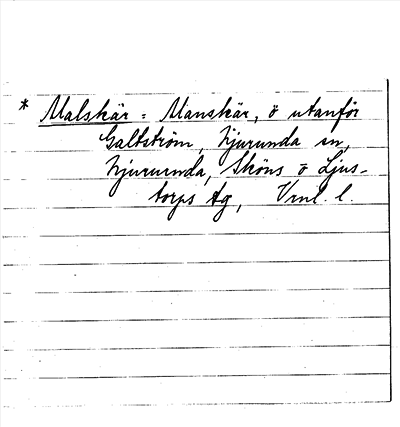 * Malskär = Manskär, ö utanför
Galtström, Njurunda sn,
Njurunda, Sköns o Ljus-
torps tg, Vml. l.